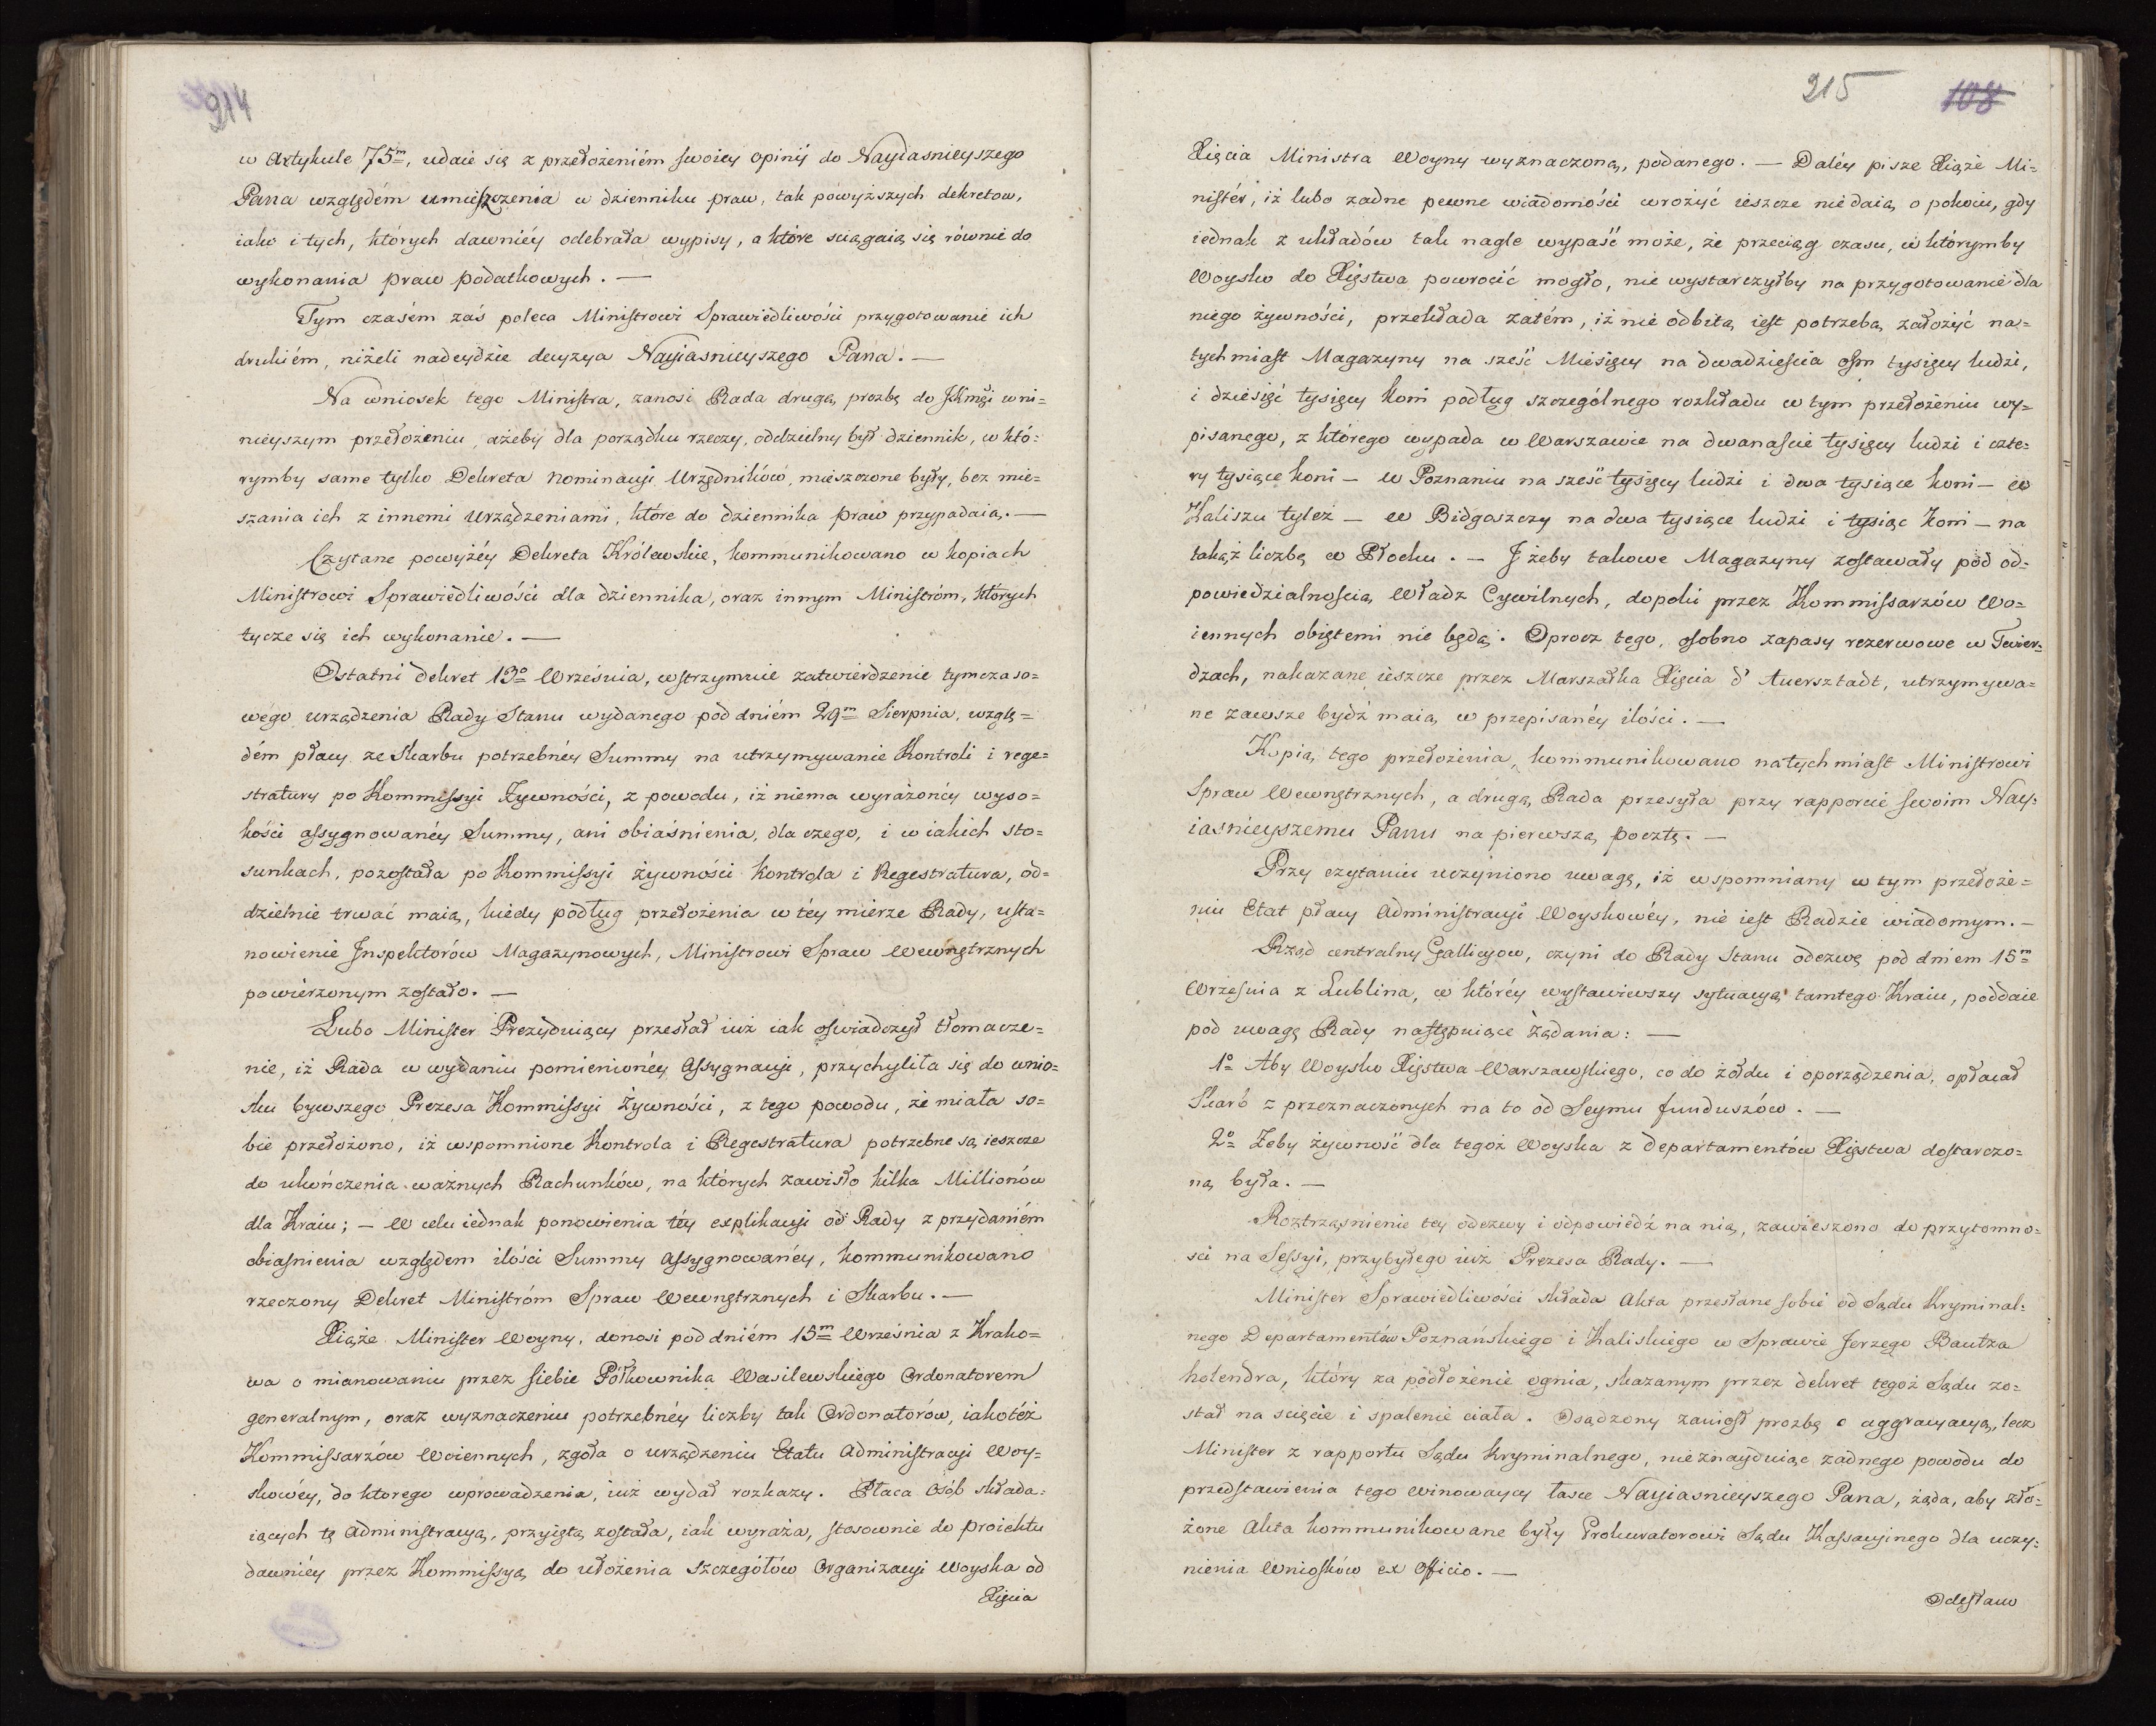 214
w Artykule 75m, udaie się z przełożeniém swoiey opinij do Nayiasnieyszego
Pana względém umieszczenia w dzienniku praw, tak powyższych dekretow,
iako i tych, których dawniéy odebrała wypisy, a które sciągaią się równie do
wykonania praw podatkowych. —
Tym czasém zaś poleca Ministrowi Sprawiedliwości przygotowanie ich
drukiém, niżeli nadeydzie decyzya Nayiasnieyszego Pana. —
Na wniosek tego Ministra, zanosi Rada drugą prozbę do JKmści w ni=
nieyszym przełożeniu, ażeby dla porządku rzeczy, oddzielny był dziennik, w któ=
rymby same tylko Dekreta nominacyi Urzędników, mieszczone były, bez mie=
szania ich z innemi Urządzeniami, które do dziennika praw przypadaią. —
Czytane powyżéy Dekreta Królewskie, kommunikowano w kopiach
Ministrowi Sprawiedliwości dla dziennika, oraz innym Ministróm, których
tycze się ich wykonanie. —
Ostatni dekret 13o Września, wstrzymuie zatwierdzenie tymczaso=
wego urządzenia Rady Stanu wydanego pod dniém 29m Sierpnia, wzglę=
dém płacy ze Skarbu potrzebnéy Summy na utrzymywanie Kontroli i rege=
stratury po Kommissyi Żywności, z powodu, iż niema wyrażonéy wyso=
kości assygnowanéy Summy, ani obiaśnienia, dla czego, i w iakich sto=
sunkach, pozostała po Kommissyi żywności Kontrola i Regestratura, od=
dzielnie trwać maią, kiedy podług przełożenia w téy mierze Rady, usta=
nowienie Inspektorów Magazynowych, Ministrowi Spraw Wewnętrznych
powierzonym zostało. —
Lubo Minister Prezyduiący przesłał iuż iak oswiadczył tłomacze=
nie, iż Rada w wydaniu pomienionéy Assygnacyi, przychyliła się do wnio=
sku bywszego Prezesa Kommissyi Żywności, z tego powodu, że miała so=
bie przełożono, iż wspomnione Kontrola i Regestratura potrzebne są ieszcze
do ukończenia ważnych Rachunków, na których zawisło kilka Millionów
dla Kraiu; — w celu iednak ponowienia téy explikacyi od Rady z przydaniém
obiasnienia względem ilości Summy Assygnowanéy, kommunikowano
rzeczony Dekret Ministróm Spraw Wewnętrznych i Skarbu. —
Xiąże Minister Woyny, donosi pod dniém 15m Września z Krako=
wa o mianowaniu przez siebie Półkownika Wasilewskiego Ordonatorem
generalnym, oraz wyznaczeniu potrzebnéy liczby tak Ordonatorów, iakotéż
Kommissarzów Woiennych, zgoła o urządzeniu Etatu Administracyi Woy=
skowéy, do ktorego wprowadzenia, iuż wydał rozkazy. Płaca Osób składa=
iących tę Administracyą, przyięta została, iak wyraża, stosownie do proiektu
dawniéy przez Kommissyą do ułożenia szczegółów Organizacyi Woyska od
Xięcia
215
108
Xięcia Ministra Woyny wyznaczoną, podanego. — Daléy pisze Xiąże Mi=
nistér, iż lubo żadne pewne wiadomości wrożyć ieszcze niedaią o pokoiu, gdy
iednak z układów tak nagle wypaść może, że przeciąg czasu, w którymby
Woysko do Xięstwa powrocić mogło, nie wystarczyłby na przygotowanie dla
niego żywności, przekłada zatém, iż nie odbitą iest potrzebą założyć na=
tychmiast Magazyny na sześć Miesięcy na dwadzieścia osm tysięcy ludzi,
i dziesięć tysięcy koni podług szczególnego rozkładu w tym przełożeniu wy=
pisanego, z którego wypada w Warszawie na dwanaście tysięcy ludzi i czte=
ry tysiące koni — w Poznaniu na sześć tysięcy ludzi i dwa tysiące koni — w
Kaliszu tyleż — w Bidgoszczy na dwa tysiące ludzi i tysiąc koni — na
takąż liczbę w Płocku. — I żeby takowe Magazyny zostawały pod od=
powiedzialnością Władz Cywilnych, dopoki przez Kommissarzów Wo=
iennych obiętemi nie będą. Oprocz tego, osobno zapasy rezerwowe w Twier=
dzach, nakazane ieszcze przez Marszałka Xięcia d'Auersztadt, utrzymywa=
ne zawsze bydź maią w przepisanéy ilości. —
Kopią tego przełożenia, kommunikowano natychmiast Ministrowi
Spraw Wewnętrznych, a drugą Rada przesyła przy rapporcie swoim Nay=
iasnieyszemu Panu na pierwszą pocztę. —
Przy czytaniu uczyniono uwagę, iż wspomniany w tym przełoże=
niu Etat płacy Administracyi Woyskowéy, nie iest Radzie wiadomym. —
Rząd centralny Gallicyow, czyni do Rady Stanu odezwę pod dniem 15m
Września z Lublina, w któréy wystawiwszy sytuacyą tamtego Kraiu, poddaie
pod uwagę Rady następuiące żądania: —
1o Aby Woysko Xięstwa Warszawskiego, co do żołdu i oporządzenia, opłacał
Skarb z przeznaczonych na to od Seymu funduszów. —
2o Żeby żywność dla tegoż Woyska z departamentów Xięstwa dostarczo=
ną była. —
Roztrząsnienie tey odezwy i odpowiedź na nią, zawieszono do przytomno=
ści na Sessyi, przybyłego iuż Prezesa Rady. —
Minister Sprawiedliwości składa Akta przesłane sobie od Sądu Kryminal=
nego Departamentów Poznańskiego i Kaliskiego w Sprawie Jerzego Bautza
holendra, który za podłożenie ognia, skazanym przez dekret tegoż Sądu zo=
stał na scięcie i spalenie ciała. Osądzony zaniosł prozbę o aggracyacyą, lecz
Minister z rapportu Sądu kryminalnego, nieznayduiąc żadnego powodu do
przedstawienia tego winowaycy łasce Nayiasnieyszego Pana, żąda, aby zło=
żone Akta kommunikowane były Prokuratorowi Sądu Kassacyinego dla uczy=
nienia Wniosków ex officio. —
Odesłano